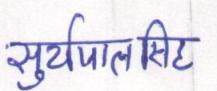 सुर्यपाल सिह